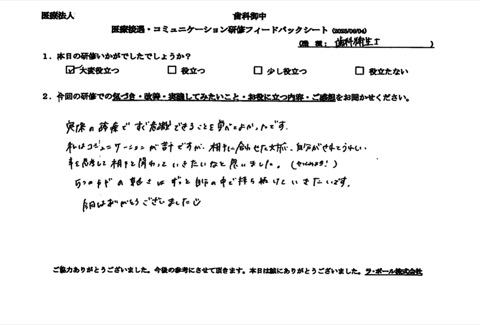 医療法人 歯科御中
医療接遇・コミュニケーション研修フィードバックシート (2025/06/04)
(職 種: 歯科衛生士 )
1.本日の研修いかがでしたでしょうか?
☑ 大変役立つ □ 役立つ □ 少し役立つ □ 役立たない
2.今回の研修での気づき・改善・実践してみたいこと・お役に立つ内容・ご感想をお聞かせください。
実際の診療ですぐ意識できることを学べてよかったです。
私はコミュニケーションが苦手ですが、相手に合わせた対応、自分がされてうれしい
事を意識して相手と関わっていきたいなと思いました。
5つの の はずっと自分の中で持ち続けていきたいです。
今日はありがとうございました☺
ご協力ありがとうございました。今後の参考にさせて頂きます。本日は誠にありがとうございました。ラ・ポール株式会社